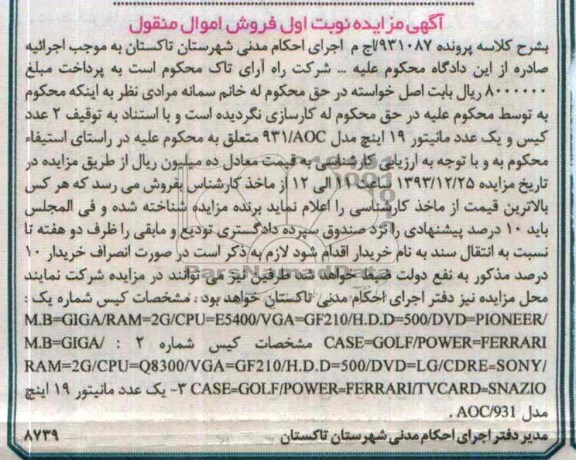 آگهی مزایده نوبت اول فروش اموال منقول
بشرح کلاسه پرونده ۹۳۱۰۸۷/اج م اجرای احکام مدنی شهرستان تاکستان به موجب اجرائیه
صادره از این دادگاه محکوم علیه ... شرکت راه آرای تاک محکوم است به پرداخت مبلغ
۸۰۰۰۰۰۰ ریال بابت اصل خواسته در حق محکوم له خانم سمانه مرادی نظر به اینکه محکوم
به توسط محکوم علیه در حق محکوم له کارسازی نگردیده است و با استناد به توقیف ۲ عدد
کیس و یک عدد مانیتور ۱۹ اینچ مدل ۹۳۱/AOC متعلق به محکوم علیه در راستای استیفاء
محکوم به و با توجه به ارزیابی کارشناسی به قیمت معادل ده میلیون ریال از طریق مزایده در
تاریخ مزایده ۱۳۹۳/۱۲/۲۵ ساعت ۱۱ الی ۱۲ از ماخذ کارشناس بفروش می رسد که هر کس
بالاترین قیمت از ماخذ کارشناسی را اعلام نماید برنده مزایده شناخته شده و فی المجلس
باید ۱۰ درصد پیشنهادی را نزد صندوق سپرده دادگستری تودیع و مابقی را ظرف دو هفته تا
نسبت به انتقال سند به نام خریدار اقدام شود لازم به ذکر است در صورت انصراف خریدار ۱۰
درصد مذکور به نفع دولت ضبط خواهد شد طرفین نیز می توانند در مزایده شرکت نمایند
محل مزایده نیز دفتر اجرای احکام مدنی تاکستان خواهد بود : مشخصات کیس شماره یک :
M.B=GIGA/RAM=2G/CPU=E5400/VGA=GF210/H.D.D=500/DVD=PIONEER/
CASE=GOLF/POWER=FERRARI مشخصات کیس شماره ۲ : M.B=GIGA/
RAM=2G/CPU=Q8300/VGA=GF210/H.D.D=500/DVD=LG/CDRE=SONY/
CASE=GOLF/POWER=FERRARI/TVCARD=SNAZIO ۳- یک عدد مانیتور ۱۹ اینچ
مدل AOC/931 .
مدیر دفتر اجرای احکام مدنی شهرستان تاکستان ۸۷۳۹